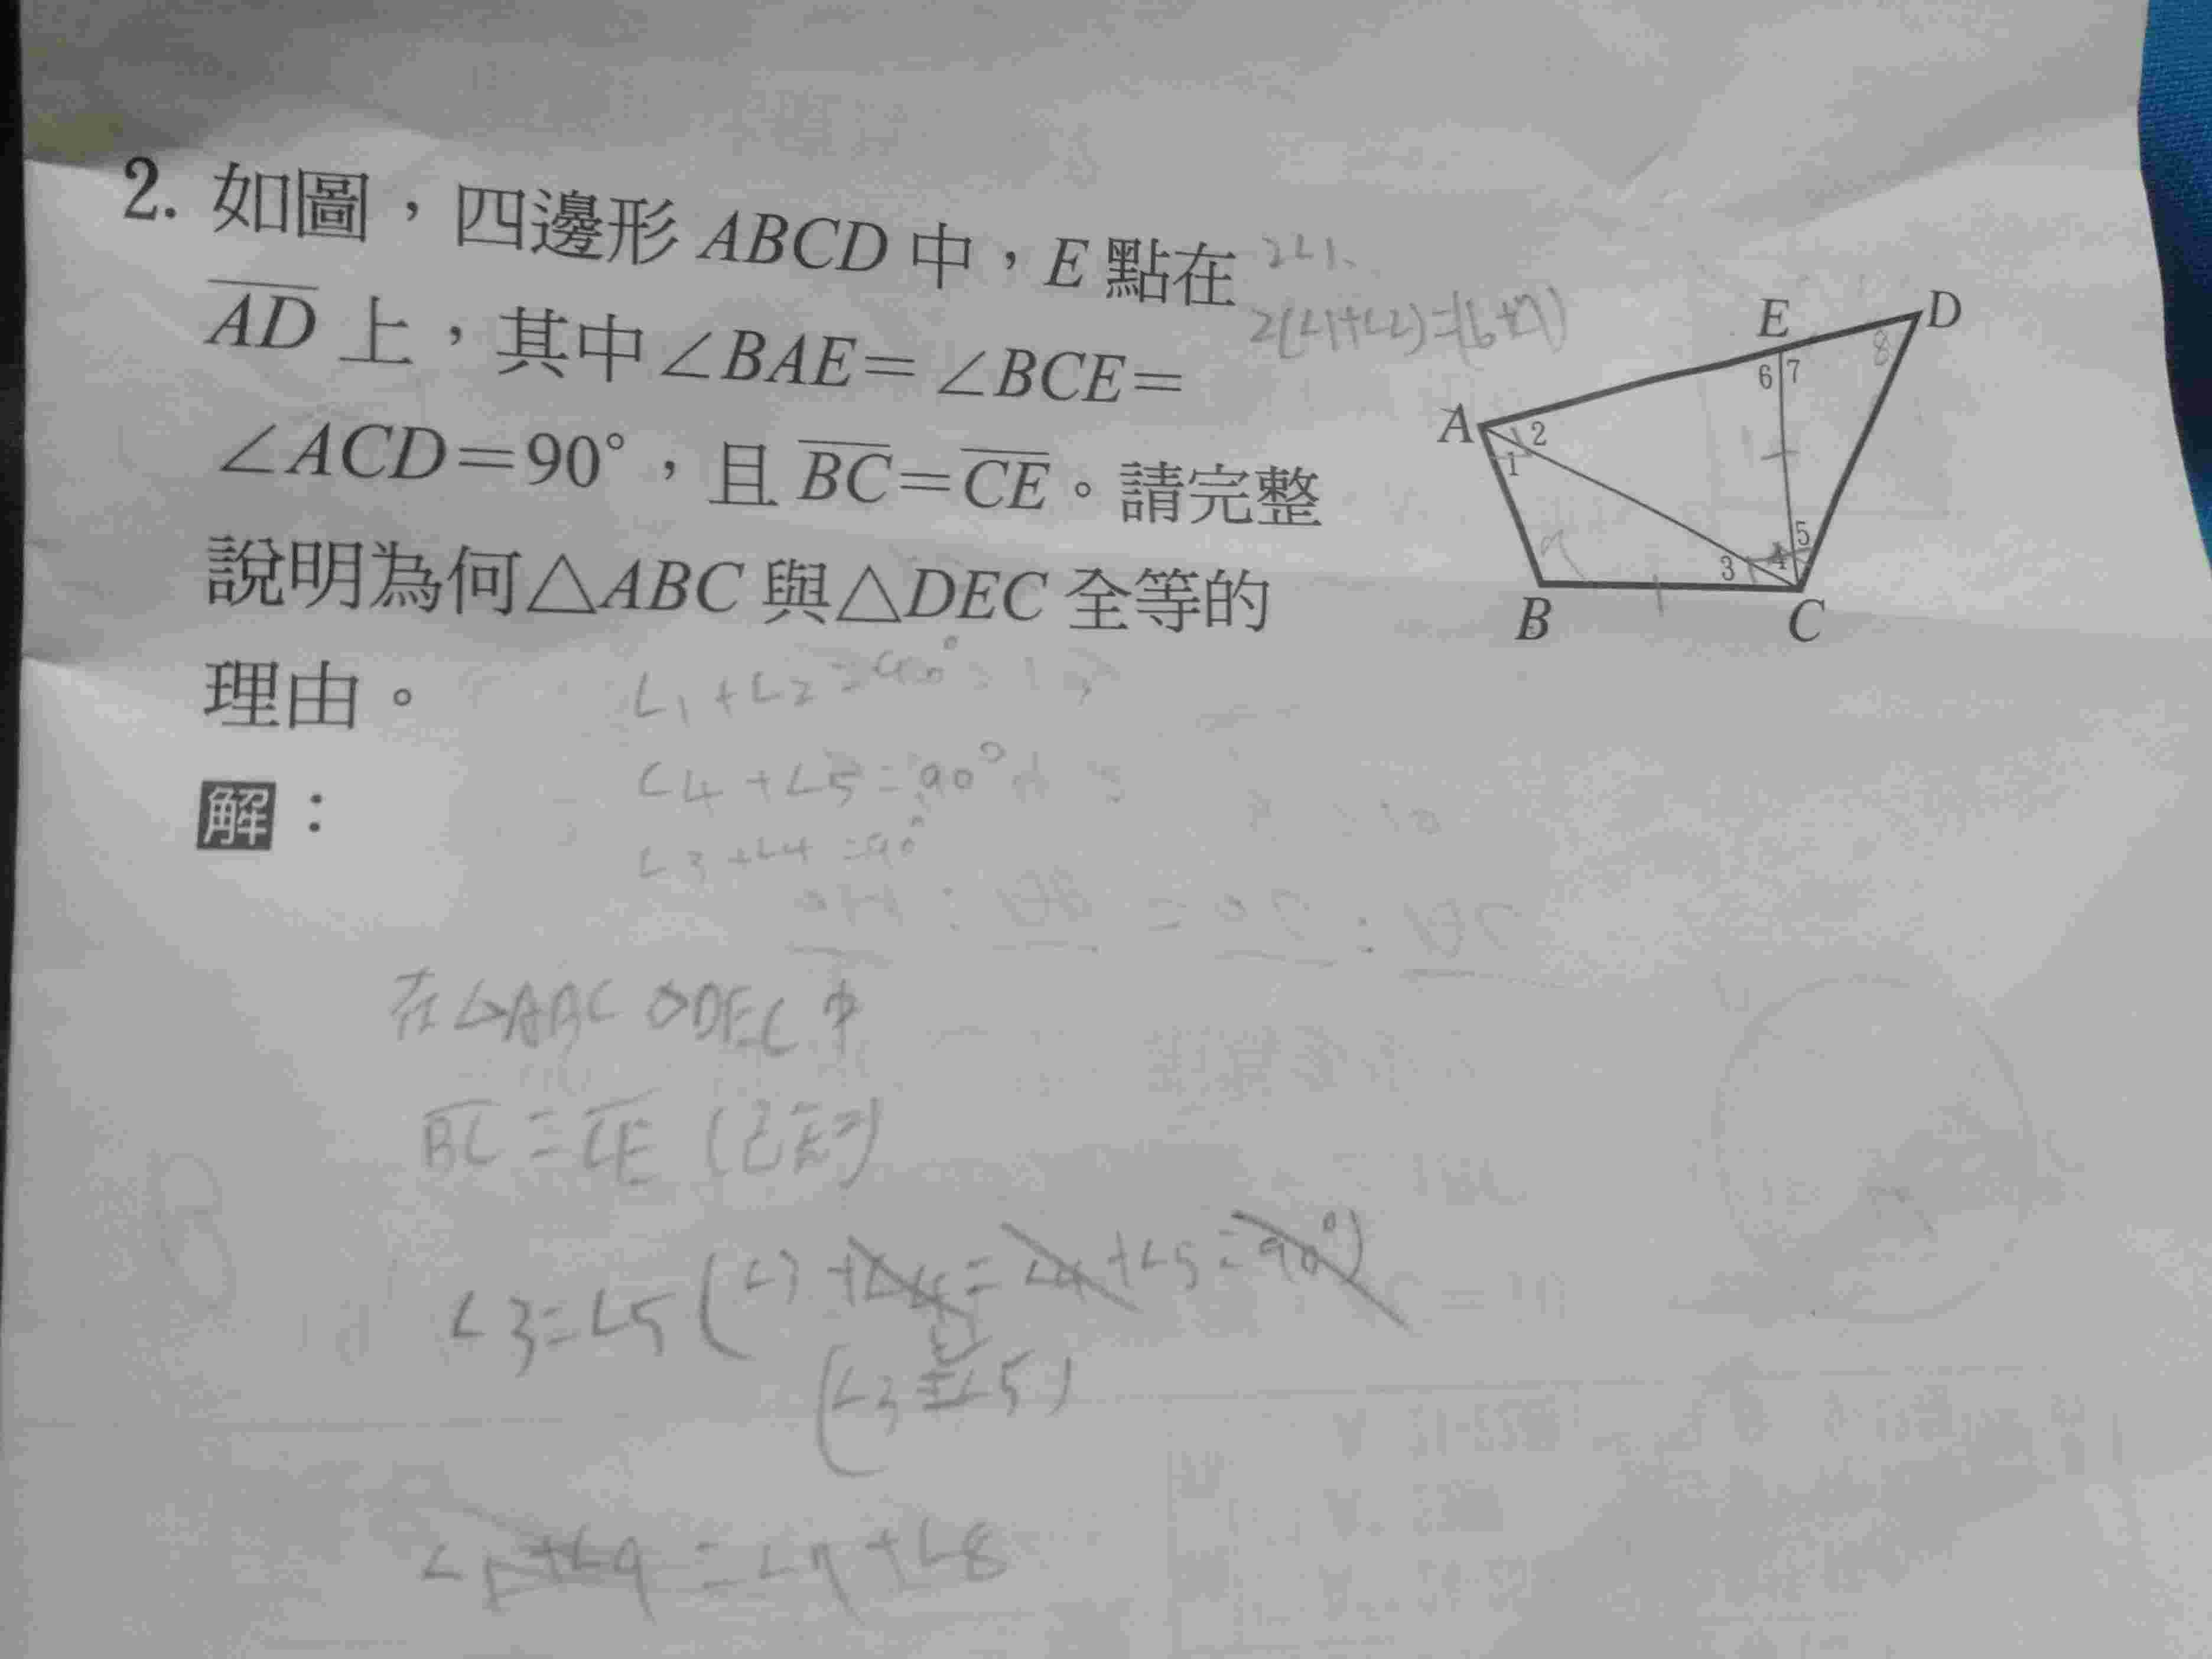 2. 如圖，四邊形 ABCD 中，E 點在
AD 上，其中∠BAE=∠BCE=
∠ACD=90°，且 BC=CE。請完整
說明為何△ABC 與△DEC 全等的
理由。
2∠1、
2(∠1+∠2)=(6+7)
A
B
C
D
E
1
2
3
4
5
6
7
8
9
解：
∠1+∠2=90°
∠4+∠5=90°
∠3+∠4=90°
在△ABC △DEC中
BC=CE (已知)
∠3=∠5(∠3+∠4=∠4+∠5=90°)
(∠3=∠5)
=∠7+∠8